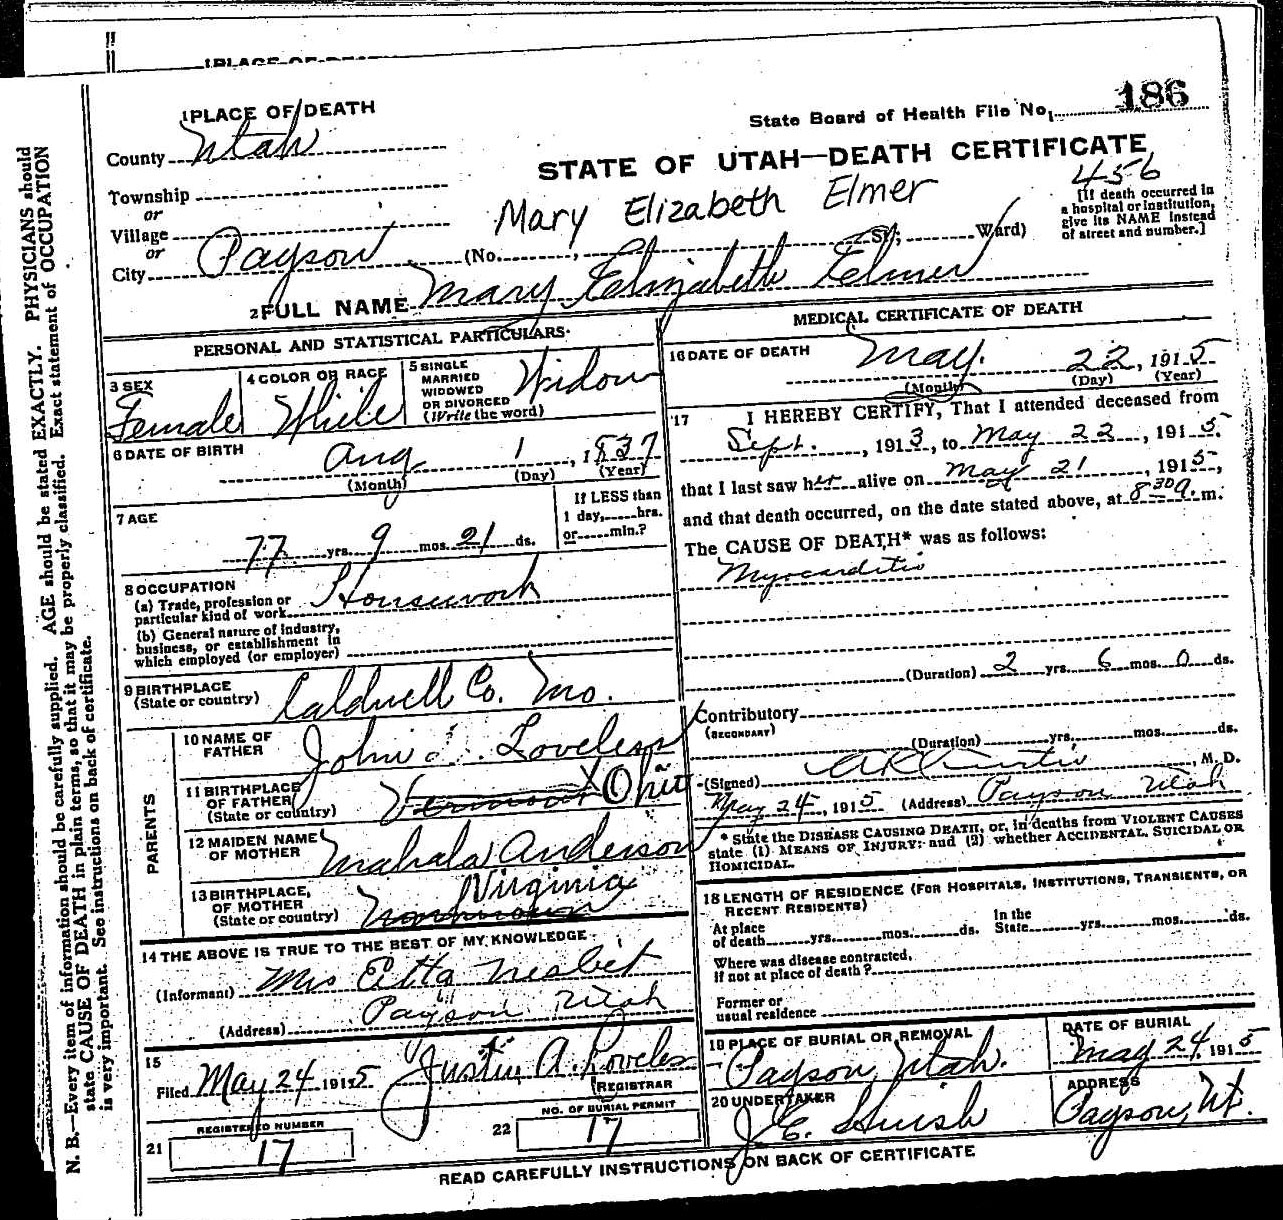 1 PLACE OF DEATH
State Board of Health File No. 186
County Utah
STATE OF UTAH—DEATH CERTIFICATE
456
Township
or
Village
or
City Payson (No. , St.; Ward)
Mary Elizabeth Elmer
[If death occurred in
a hospital or institution,
give its NAME instead
of street and number.]
2 FULL NAME Mary Elizabeth Elmer
PERSONAL AND STATISTICAL PARTICULARS
3 SEX
Female
4 COLOR OR RACE
White
5 SINGLE
MARRIED
WIDOWED
OR DIVORCED
(Write the word)
Widow
6 DATE OF BIRTH
Aug 1, 1837
(Month) (Day) (Year)
7 AGE
77 yrs. 9 mos. 21 ds.
If LESS than
1 day, hrs.
or min.?
8 OCCUPATION
(a) Trade, profession or
particular kind of work Housework
(b) General nature of industry,
business, or establishment in
which employed (or employer)
9 BIRTHPLACE
(State or country) Caldwell Co. Mo.
PARENTS
10 NAME OF
FATHER
John Loveless
11 BIRTHPLACE
OF FATHER
(State or country)
Vermont X Ohio
12 MAIDEN NAME
OF MOTHER
Mahala Anderson
13 BIRTHPLACE,
OF MOTHER
(State or country)
Virginia
14 THE ABOVE IS TRUE TO THE BEST OF MY KNOWLEDGE
(Informant) Mrs Etta Nesbit
(Address) Payson Utah
15
Filed May 24 1915 Justin A. Loveless
REGISTRAR
REGISTERED NUMBER
21 17
NO. OF BURIAL PERMIT
22 17
MEDICAL CERTIFICATE OF DEATH
16 DATE OF DEATH
May. 22, 1915
(Month) (Day) (Year)
17 I HEREBY CERTIFY, That I attended deceased from
Sept. , 1913, to May 22 , 1915.
that I last saw her alive on May 21 , 1915,
and that death occurred, on the date stated above, at 8 30 a. m.
The CAUSE OF DEATH* was as follows:
Myocarditis
(Duration) 2 yrs. 6 mos. 0 ds.
Contributory
(SECONDARY)
(Duration) yrs. mos. ds.
(Signed) , M. D.
May 24, 1915 (Address) Payson Utah
* State the DISEASE CAUSING DEATH, or, in deaths from VIOLENT CAUSES
state (1) MEANS OF INJURY; and (2) whether ACCIDENTAL, SUICIDAL OR
HOMICIDAL.
18 LENGTH OF RESIDENCE (FOR HOSPITALS, INSTITUTIONS, TRANSIENTS, OR
RECENT RESIDENTS)
At place
of death yrs. mos. ds.
In the
State yrs. mos. ds.
Where was disease contracted,
if not at place of death?
Former or
usual residence
19 PLACE OF BURIAL OR REMOVAL
Payson, Utah.
DATE OF BURIAL
May 24, 1915
20 UNDERTAKER
J E. Huish
ADDRESS
Payson, Ut.
READ CAREFULLY INSTRUCTIONS ON BACK OF CERTIFICATE
N. B.—Every item of information should be carefully supplied. AGE should be stated EXACTLY. PHYSICIANS should
state CAUSE OF DEATH in plain terms, so that it may be properly classified. Exact statement of OCCUPATION
is very important. See instructions on back of certificate.